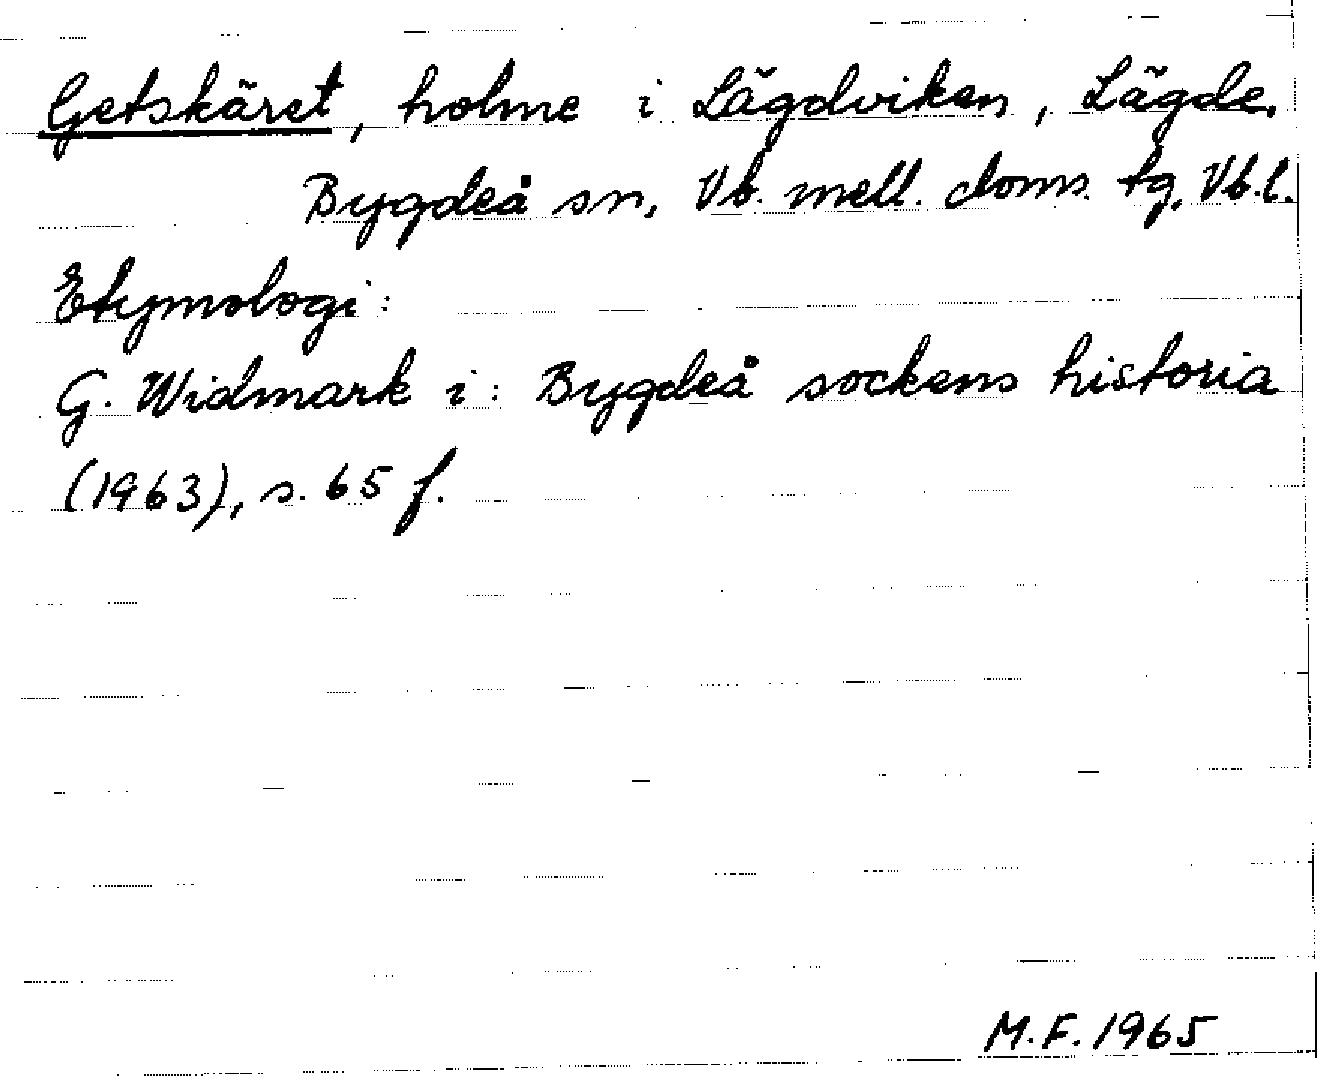 Getskäret, holme i Lägdviken, Lägde,
Bygdeå sn, Vb. mell. doms. tg, Vb.l.
Etymologi:
G. Widmark i: Bygdeå sockens historia
(1963), s. 65 f.
M.F. 1965